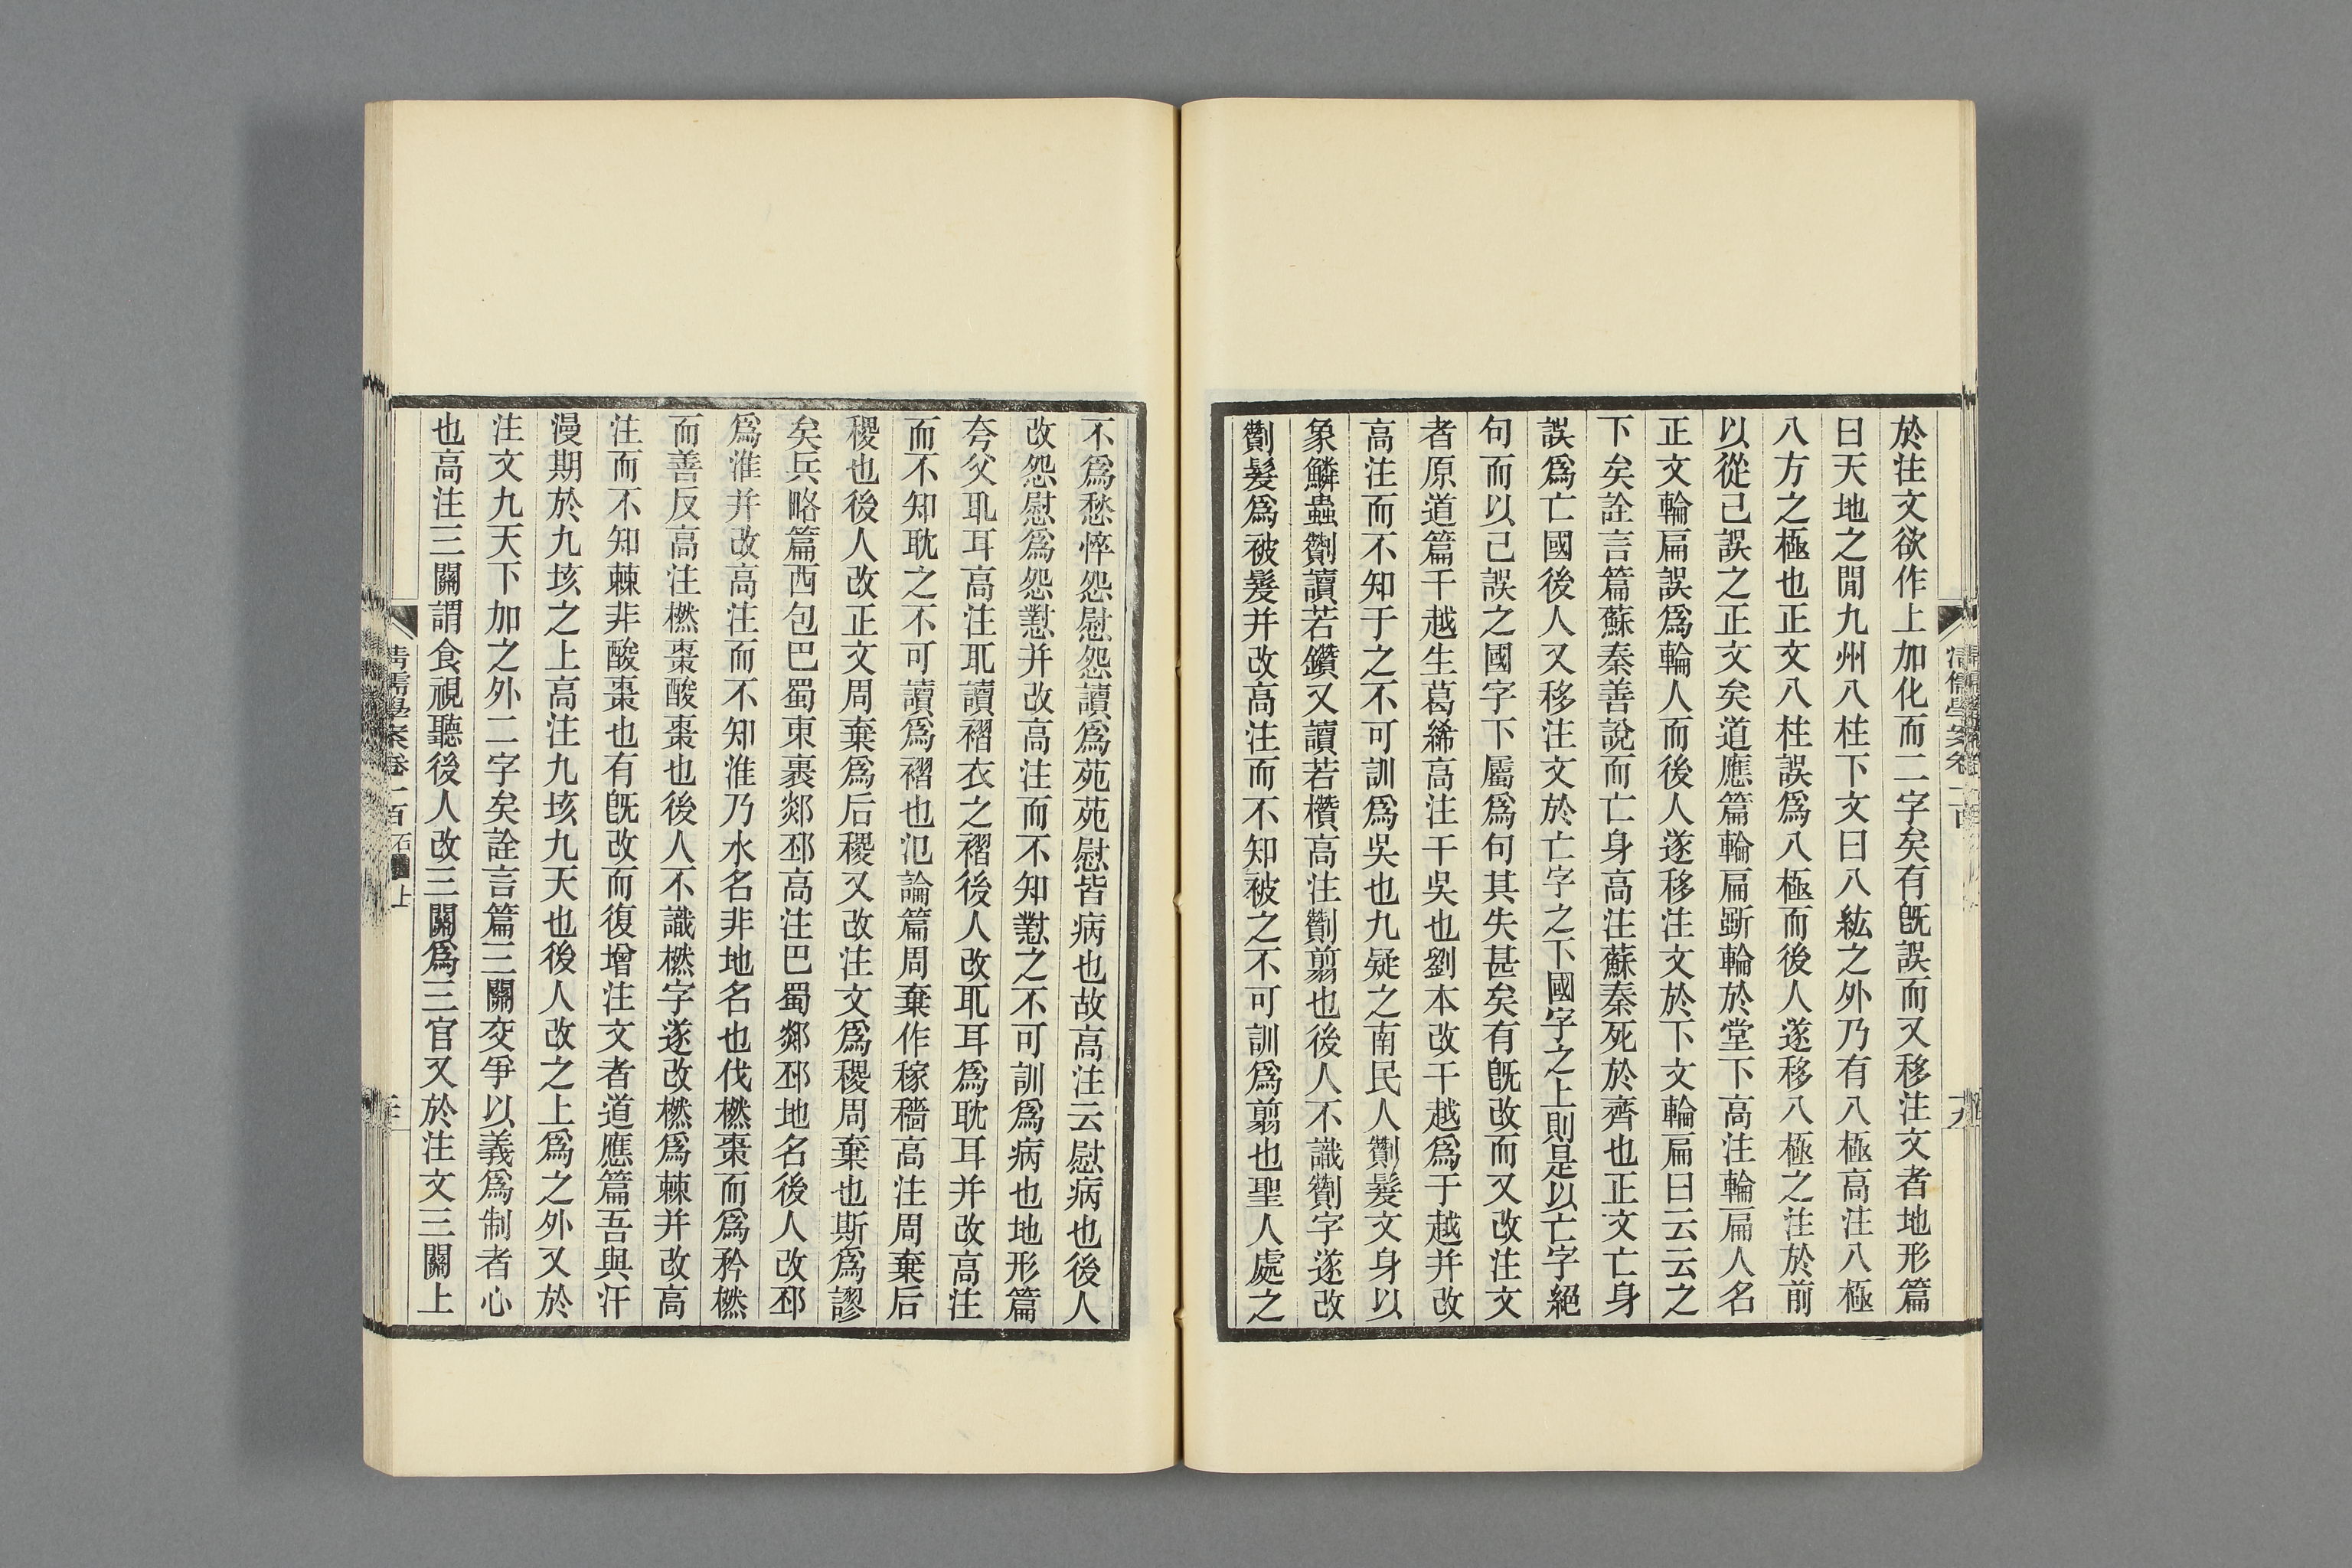 於注文欲作上加化而二字矣有旣誤而又移注文者地形篇
曰天地之閒九州八柱下文曰八紘之外乃有八極高注八極
八方之極也正文八柱誤爲八極而後人遂移八極之注於前
以從己誤之正文矣道應篇輪扁斲輪於堂下高注輪扁人名
正文輪扁誤爲輪人而後人遂移注文於下文輪扁曰云云之
下矣詮言篇蘇秦善說而亡身高注蘇秦死於齊也正文亡身
誤爲亡國後人又移注文於亡字之下國字之上則是以亡字絕
句而以己誤之國字下屬爲句其失甚矣有旣改而又改注文
者原道篇干越生葛絺高注干吳也劉本改干越爲于越并改
高注而不知于之不可訓爲吳也九疑之南民人劗髮文身以
象鱗蟲劗讀若鑽又讀若欑高注劗翦也後人不識劗字遂改
劗髮爲被髮并改高注而不知被之不可訓爲翦也聖人處之
不爲愁悴怨慰怨讀爲苑苑慰皆病也故高注云慰病也後人
改怨慰爲怨懟并改高注而不知懟之不可訓爲病也地形篇
夸父耴耳高注耴讀褶衣之褶後人改耴耳爲耽耳并改高注
而不知耽之不可讀爲褶也氾論篇周棄作稼穡高注周棄后
稷也後人改正文周棄爲后稷又改注文爲稷周棄也斯爲謬
矣兵略篇西包巴蜀東裹郯邳高注巴蜀郯邳地名後人改邳
爲淮并改高注而不知淮乃水名非地名也伐橪棗而爲矜橪
而善反高注橪棗酸棗也後人不識橪字遂改橪爲棘并改高
注而不知棘非酸棗也有旣改而復增注文者道應篇吾與汗
漫期於九垓之上高注九垓九天也後人改之上爲之外又於
注文九天下加之外二字矣詮言篇三關交爭以義爲制者心
也高注三關謂食視聽後人改三關爲三官又於注文三關上
清儒學案卷一百
石
上